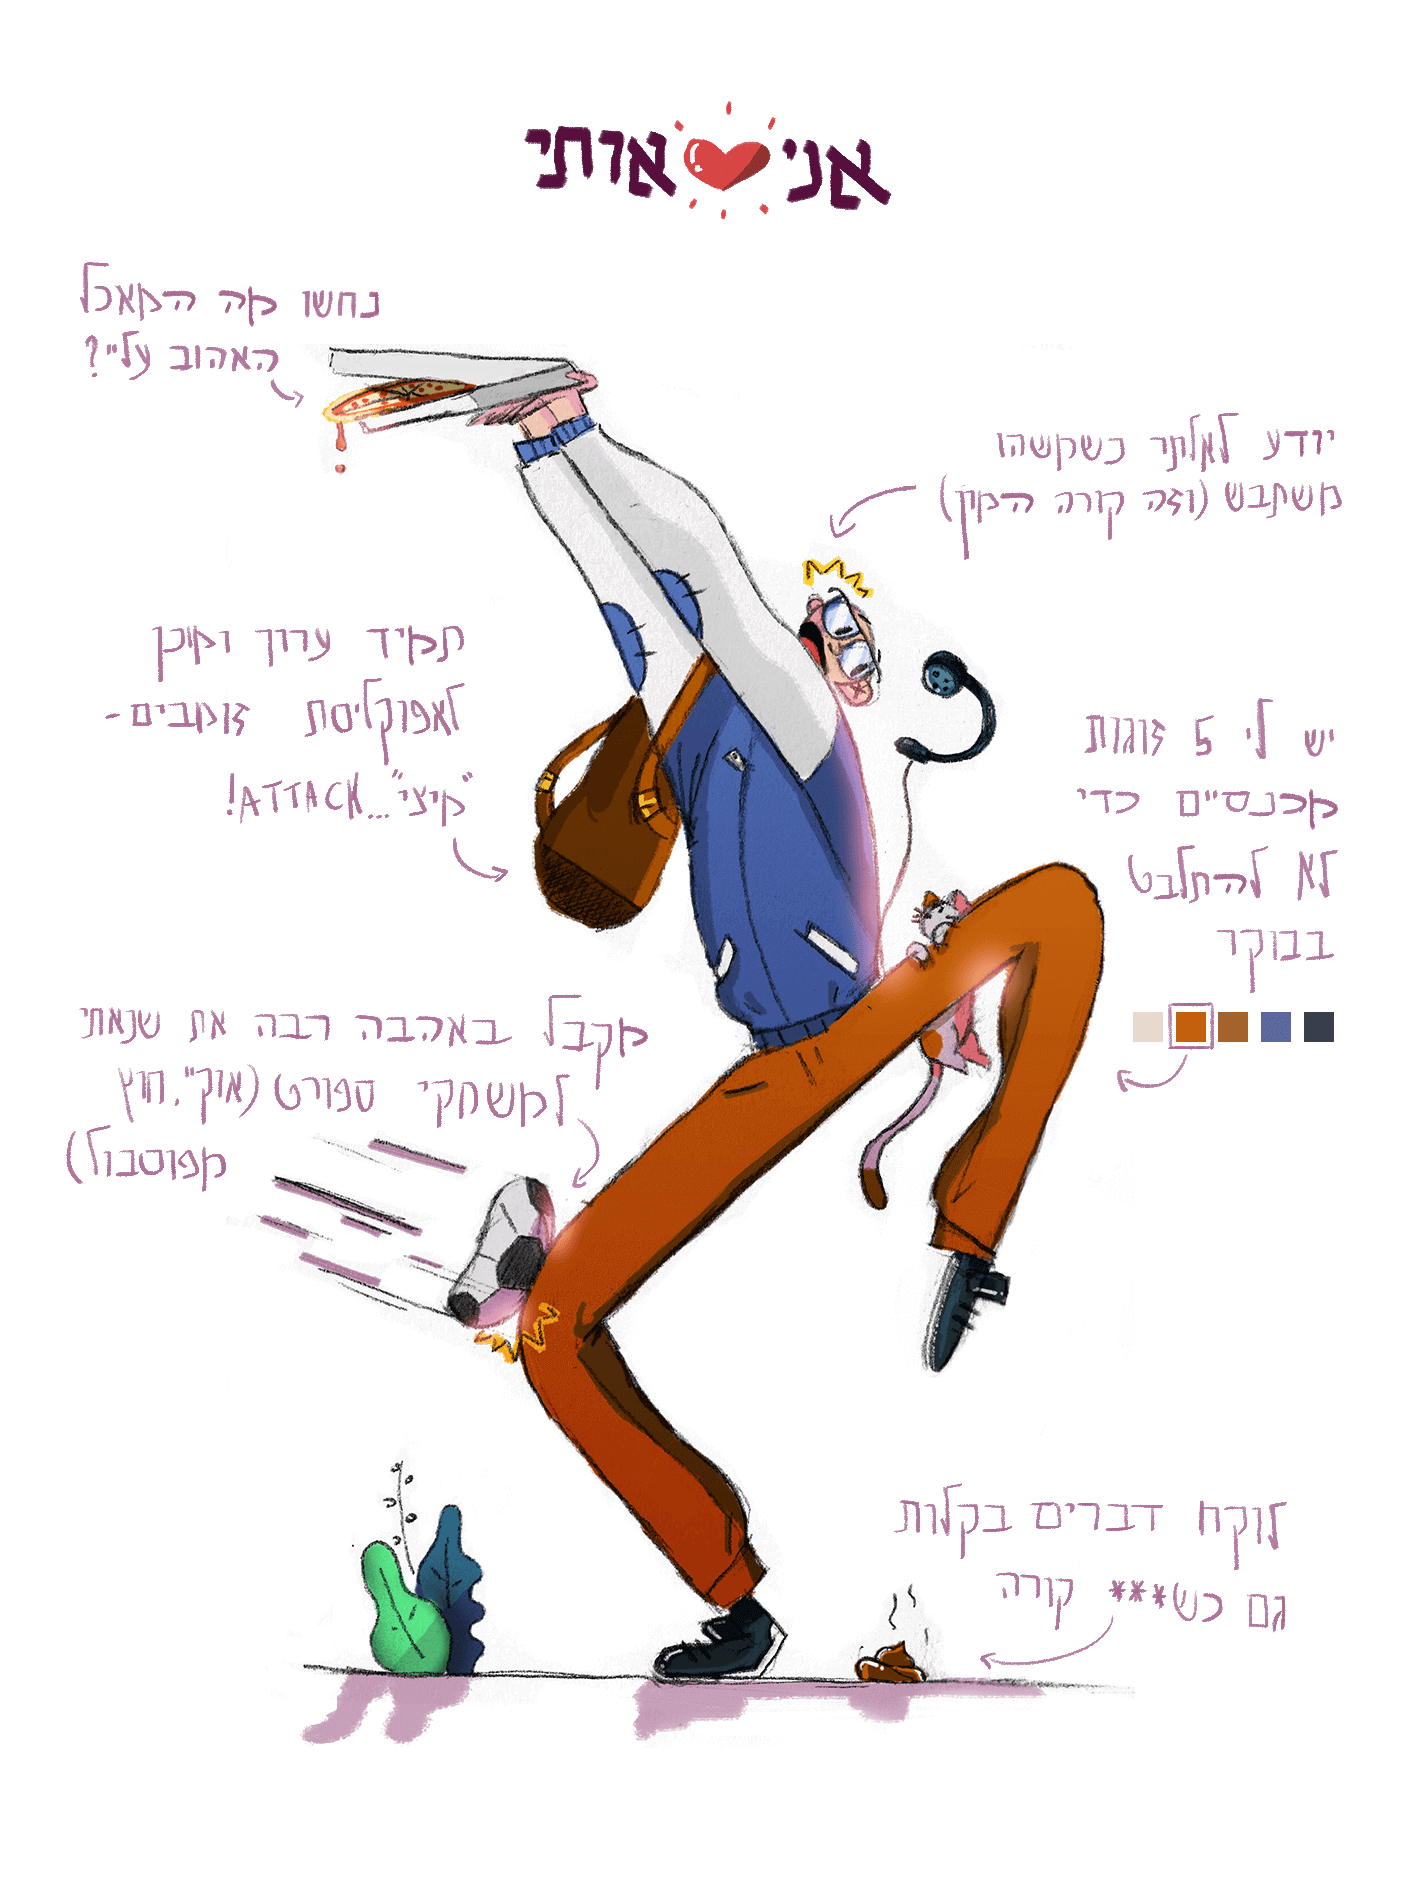 אני אותי
נחשו מה המאכל
האהוב עליי?
יודע לאלתר כשמשהו
משתבש (וזה קורה המון)
תמיד ערוך ומוכן
לאפוקליפסת זומבים-
"קיצי"...ATTACK!
יש לי 5 זוגות
מכנסיים כדי
לא להתלבט
בבוקר
מקבל באהבה רבה את שנאתי
למשחקי ספורט (אוקיי, חוץ
מפוסבול)
לוקח דברים בקלות
גם כש*** קורה